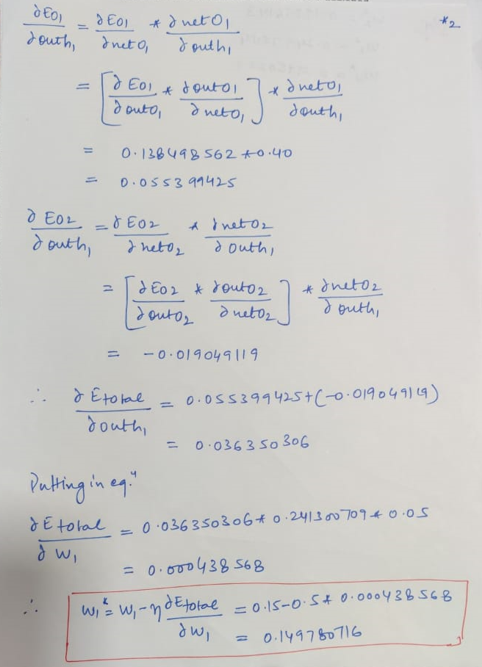 *2
∂EO1/∂outh1 = ∂EO1/∂netO1 * ∂netO1/∂outh1
= [∂EO1/∂outO1 * ∂outO1/∂netO1] * ∂netO1/∂outh1
= 0.138498562 * 0.40
= 0.055399425
∂EO2/∂outh1 = ∂EO2/∂netO2 * ∂netO2/∂outh1
= [∂EO2/∂outO2 * ∂outO2/∂netO2] * ∂netO2/∂outh1
= -0.019049119
∴ ∂Etotal/∂outh1 = 0.055399425+(-0.019049119)
= 0.036350306
Putting in eqⁿ
∂Etotal/∂W1 = 0.036350306 * 0.241300709 * 0.05
= 0.000438568
∴ W1* = W1 - η ∂Etotal/∂W1 = 0.15-0.5 * 0.000438568
= 0.149780716